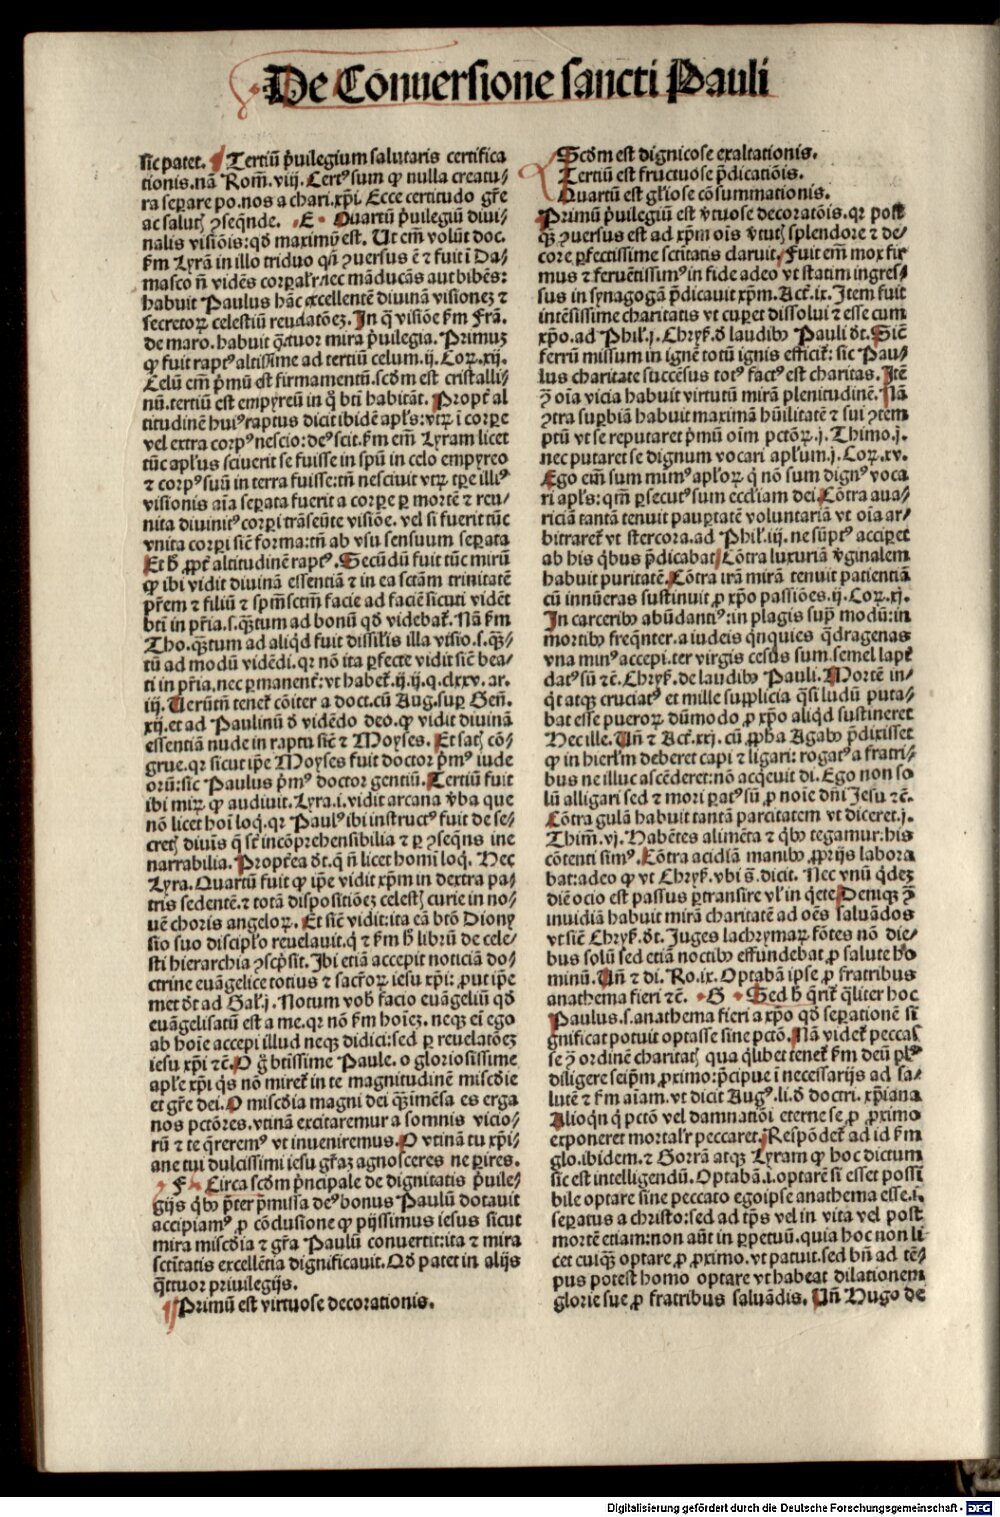 De Conuersione sancti Pauli
sic patet. Tertiũ p̃uilegium salutaris certifica
tionis.nã Rom̃.viij. Certꝰ sum ꝙ nulla creatu⸗
ra seꝑare po.nos a chari.xp̃i. Ecce certitudo gr̃e
ac saluꝭ ꝯseq̃nde. E Quartũ p̃uilegiũ diui⸗
nalis visiõis:qđ maximũ est. Ut em̃ volũt doc.
ẜm Lyrã in illo triduo qñ ꝯuersus ẽ ⁊ fuit ĩ Da⸗
masco ñ vidẽs corꝑalr̃ nec mãducãs aut bibẽs:
habuit Paulus hãc excellentẽ diuinã visionez ⁊
secretoꝝ celestiũ reuelatõez. In q̃ visiõe ẜm Frã.
de maro.habuit q̃tuor mira p̃uilegia. Primuz
ꝙ fuit raptꝰ altissime ad tertiũ celum.ij. Coꝝ.xij.
Celũ em̃ p̃mũ est firmamentũ.scđm est cristalli⸗
nũ.tertiũ est empyreũ in q̃ bt̃i habitãt. Propt̃ al
titudinẽ huiꝰ raptus dicit ibidẽ apl̃s:vtꝝ ĩ corꝑe
vel extra corpꝰ nescio:deꝰ scit.ẜm em̃ Lyram licet
tũc apl̃us sciuerit se fuisse in spũ in celo empyreo
⁊ corpꝰ suũ in terra fuisse:tñ nesciuit vtꝝ tꝑe illiꝰ
visionis aĩa seꝑata fuerit a corꝑe ꝑ mortẽ ⁊ reu⸗
nita diuinitꝰ corꝑi trãseũte visiõe. vel si fuerit tũc
vnita corꝑi sic̃ forma:tñ ab vsu sensuum seꝑata
Et h̃ ꝓpt̃ altitudinẽ raptꝰ. Secũdũ fuit tũc mirũ
ꝙ ibi vidit diuinã essentiã ⁊ in ea sctãm trinitatẽ
pr̃em ⁊ filiũ ⁊ spm̃sctm̃ facie ad faciẽ sicuti vidẽt
bt̃i in pr̃ia.s.qꝫtum ad bonũ qđ videbat̃. Nã ẜm
Tho.qꝫtum ad aliqđ fuit dissilis illa visio.s.qꝫ⸗
tũ ad modũ vidẽdi.qꝛ nõ ita ꝑfecte vidit sic̃ bea⸗
ti in pr̃ia.nec ꝑmanent̃:vt habet̃.ij.ij.q.clxxv.ar.
iij. Uerũtñ tenet̃ cõiter a doct.cũ Aug.suꝑ Gen̄.
xij.et ad Paulinũ đ vidẽdo deo.ꝙ vidit diuinã
essentiã nude in raptu sic̃ ⁊ Moyses. Et saꝭ cõ⸗
grue.qꝛ sicut ip̃e Moyses fuit doctor p̃mꝰ iude
orũ:sic Paulus p̃mꝰ doctor gentiũ. Tertiũ fuit
ibi miꝝ ꝙ audiuit. Lyra.i.vidit arcana v̄ba que
nõ licet hoĩ loq̃.qꝛ Paulꝰ ibi instructꝰ fuit de se⸗
creꝭ diuinis q̃ st̃ incõprehensibilia ⁊ ꝑ ꝯseq̃ns ine
narrabilia. Propt̃ea đt.q̃ ñ licet homĩ loq̃. Hec
Lyra. Quartũ fuit ꝙ ip̃e vidit xp̃m in dextra pa⸗
tris sedentẽ.⁊ totã dispositiõez celesꝭ curie in no⸗
uẽ choris angeloꝝ. Et sic̃ vidit:ita eã bt̃õ Diony
sio suo discipl̃o reuelauit.q̃ ⁊ ẜm h̃ librũ de cele⸗
sti hierarchia ꝯscp̃sit. Ibi etiã accepit noticiã do⸗
ctrine euãgelice totius ⁊ sacr̃oꝝ iesu xp̃i: ꝓut ip̃e
met đt ad Gal̃.j. Notum vob̃ facio euãgeliũ qđ
euãgelisatũ est a me.qꝛ nõ ẜm hoĩez. neqꝫ ei ego
ab hoĩe accepi illud neqꝫ didici:sed ꝑ reuelatõez
iesu xp̃i ⁊c̃. O g̃ bt̃issime Paule. o gloriosissime
apl̃e xp̃i q̃s nõ miret̃ in te magnitudinẽ miscđie
et gr̃e dei. O miscđia magni dei qꝫ imẽsa es erga
nos pctõres.vtinã excitaremur a somnis vicio⸗
rũ ⁊ te q̃reremꝰ vt inueniremus. O vtinã tu xp̃i⸗
ane tui dulcissimi iesu gr̃az agnosceres ne ꝑires.
F Circa scđm p̃ncipale de dignitatis p̃uile⸗
gijs q̃bꝰ p̃ter p̃missa deꝰ bonus Paulũ dotauit
accipiamꝰ ꝓ cõclusione ꝙ pijssimus iesus sicut
mira miscđia ⁊ gr̃a Paulũ conuertit:ita ⁊ mira
sctitatis excellẽtia dignificauit. Qđ patet in alijs
q̃ttuor priuilegijs.
Primũ est virtuose decorationis.
Scđm est dignicose exaltationis.
Tertiũ est fructuose p̃dicatiõis.
Quartũ est gl̃iose cõsummationis.
Primũ p̃uilegiũ est v̄tuose decoratõis.qꝛ post
qꝫ ꝯuersus est ad xp̃m oĩs v̄tuꝭ splendore ⁊ de⸗
core ꝑfectissime sctitatis claruit. Fuit em̃ mox fir
mus ⁊ feruẽtissimꝰ in fide adeo vt statim ingres⸗
sus in synagogã p̃dicauit xp̃m. Act̃.ix. Item fuit
intẽsissime charitatis vt cuꝑet dissolui ⁊ esse cum
xp̃o.ad Phil̃.j. Chryẜ.đ laudibꝰ Pauli đt. Sic̃
ferrũ missum in ignẽ totũ ignis efficit̃: sic Pau⸗
lus charitate succẽsus totꝰ factꝰ est charitas. Itẽ
ꝯ oĩa vicia habuit virtutũ mirã plenitudinẽ. Nã
ꝯtra suꝑbiã habuit maximã hũilitatẽ ⁊ sui ꝯtem
ptũ vt se reputaret p̃mũ oĩm pctõꝝ.j. Thimo.j.
nec putaret se dignum vocari apl̃um.j. Coꝝ.xv.
Ego em̃ sum mimꝰ apl̃oꝝ q̃ nõ sum dignꝰ voca
ri apl̃s:qm̃ ꝑsecutꝰ sum eccl̃iam dei. Cõtra aua⸗
riciã tantã tenuit pauꝑtatẽ voluntariã vt oĩa ar⸗
bitraret̃ vt stercora.ad Phil̃.iij. ne sũptꝰ acciꝑet
ab his q̃bus p̃dicabat. Cõtra luxuriã v̄ginalem
habuit puritatẽ. Cõtra irã mirã tenuit patientiã
cũ innũeras sustinuit ꝓ xp̃o passiões.ij. Coꝝ.xj.
In carceribꝰ abũdantiꝰ:in plagis sup̃ modũ:in
mortibꝰ freq̃nter.a iudeis q̃nquies q̃dragenas
vna minꝰ accepi.ter virgis cesus sum.semel lapi̇
datꝰ sũ ⁊c̃. Chryẜ.de laudibꝰ Pauli. Mortẽ in⸗
q̃t atqꝫ cruciatꝰ et mille supplicia q̃si ludũ puta⸗
bat esse pueroꝝ dũmodo ꝓ xp̃o aliqđ sustineret
Hec ille. Uñ ⁊ Act̃.xxj. cũ ꝓph̃a Agabꝰ p̃dixisset
ꝙ in hierl̃m deberet capi ⁊ ligari: rogatꝰ a fratri⸗
bus ne illuc ascẽderet:nõ acq̃euit di. Ego non so
lũ alligari sed ⁊ mori ꝑatꝰ sũ ꝓ noĩe dñi Jesu ⁊c̃.
Cõtra gulã habuit tantã parcitatem vt diceret.j.
Thim̃.vj. Habẽtes alimẽta ⁊ q̃bꝰ tegamur:his
cõtenti simꝰ. Cõtra acidiã manibꝰ ꝓprijs labora
bat:adeo ꝙ vt Chryẜ.vbi s̃.dicit. Nec vnũ q̃dez
diẽ ocio est passus ꝑtransire vl̃ in q̃ete. Deniqꝫ ꝯ
inuidiã habuit mirã charitatẽ ad oẽs saluãdos
vt sic̃ Chryẜ.đt. Juges lachrymaꝝ fõtes nõ die⸗
bus solũ sed etiã noctibꝰ effundebat ꝓ salute ho̊
minũ. Uñ ⁊ di. Ro.ix. Optabã ipse ꝓ fratribus
anathema fieri ⁊c̃. G Sed h̃ q̃rit̃ q̃liter hoc
Paulus.s.anathema fieri a xp̃o qđ seꝑationẽ si
gnificat potuit optasse sine pctõ. Nã videt̃ peccas
se ꝯ ordinẽ charitaꝭ qua q̃libet tenet̃ ẜm deũ plꝰ
diligere seip̃m ꝓximo:p̃cipue ĩ necessarijs ad sa⸗
lutẽ ⁊ ẜm aĩam.vt dicit Augꝰ.li.đ doctri. xp̃iana
Alioq̃n q̃ pctõ vel damnatiõi eterne se ꝓ ꝓximo
exponeret mortal̃r peccaret. Respõdet̃ ad id ẜm
glo.ibidem.⁊ Gorrã atqꝫ Lyram ꝙ hoc dictum
sic est intelligendũ. Optabã.i.optarẽ si esset possi
bile optare sine peccato egoipse anathema esse.i.
seꝑatus a christo:sed ad tp̃s vel in vita vel post
mortẽ etiam:non aũt in ꝑpetuũ.quia hoc non li
cet cuiqꝫ optare ꝓ ꝓximo.vt patuit.sed bñ ad tẽ⸗
pus potest homo optare vt habeat dilationem
glorie sue ꝓ fratribus saluãdis. Uñ Hugo de
Digitalisierung gefördert durch die Deutsche Forschungsgemeinschaft - DFG